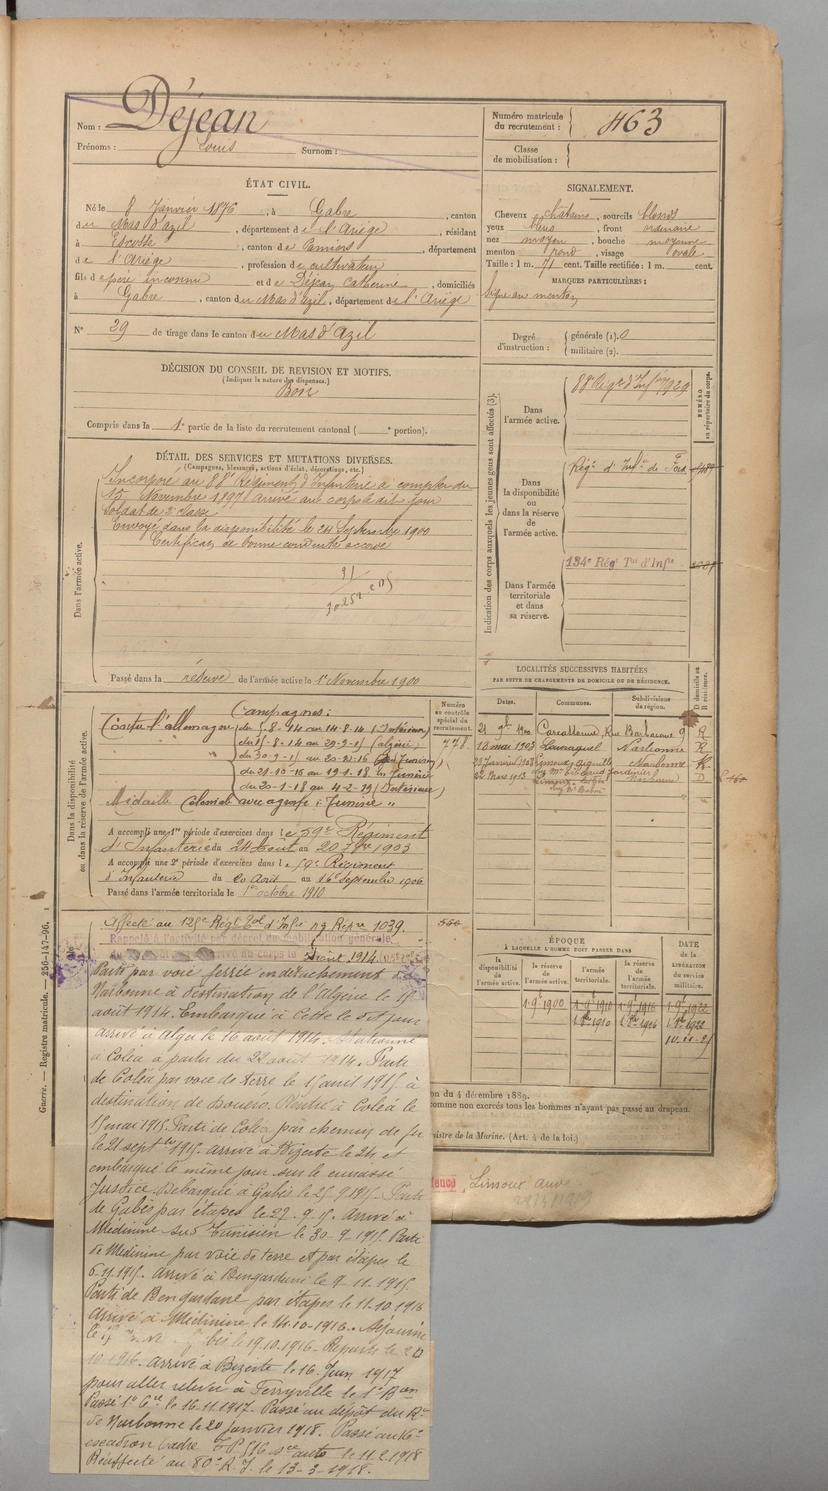 Nom : Déjean
Prénoms : Louis Surnom :
Numéro matricule du recrutement : 463
Classe de mobilisation :
ÉTAT CIVIL.
Né le 8 Janvier 1876, à Gabre, canton
du Mas d'azil, département de l'Ariège, résidant
à Escosse, canton de Pamiers, département
de l'Ariège, profession de cultivateur
fils de père inconnu et de Déjean Catherine, domiciliés
à Gabre, canton du Mas d'Azil, département de l'Ariège
N° 29 de tirage dans le canton du Mas d'Azil
SIGNALEMENT.
Cheveux châtains, sourcils blonds
yeux bleus, front ordinaire
nez moyen, bouche moyenne
menton rond, visage ovale
Taille : 1 m. 71 cent. Taille rectifiée : 1 m. cent.
MARQUES PARTICULIÈRES :
Signe au menton
Degré d'instruction : générale (1). 0
militaire (2).
DÉCISION DU CONSEIL DE REVISION ET MOTIFS.
(Indiquer la nature des dispenses.)
Bon
Compris dans la 1e partie de la liste du recrutement cantonal ( e portion).
DÉTAIL DES SERVICES ET MUTATIONS DIVERSES.
(Campagnes, blessures, actions d'éclat, décorations, etc.)
Dans l'armée active.
Incorporé au 88e Régiment d'Infanterie à compter du
15 Novembre 1897 arrivé au corps le dit jour
Soldat de 2e classe
Envoyé dans la disponibilité le 24 Septembre 1900
Certificat de bonne conduite accordé
Passé dans la réserve de l'armée active le 1er Novembre 1900
Indication des corps auxquels les jeunes gens sont affectés (3).
NUMÉRO au répertoire du corps.
Dans l'armée active.
88e Régt d'Infie
Dans la disponibilité ou dans la réserve de l'armée active.
Régt d'Infie de Foix
Dans l'armée territoriale et dans sa réserve.
134e Régt Tal d'Infie
LOCALITÉS SUCCESSIVES HABITÉES
PAR SUITE DE CHANGEMENTS DE DOMICILE OU DE RÉSIDENCE.
Dates. Communes. Subdivisions de région. D domicile ou R résidence.
Carcassonne, Rue Barbacane 9 R
18 mai 1903 Narbonne R
Janvier 1908 Limoux Narbonne R
22 Mars 1913 Limoux Narbonne D
Dans la disponibilité ou dans la réserve de l'armée active.
Numéro au contrôle spécial du recrutement.
778
Campagnes :
Contre l'allemagne du 5-8-14 au 14-8-14 (Intérieur)
du 15-8-14 au 29-9-15 (algérie)
du 30-9-15 au 20-12-16 (Sud Tunisien)
du 21-12-16 au 19-1-18 (Tunisie)
du 20-1-18 au 4-2-19 (Intérieur)
Médaille Coloniale avec agrafe "Tunisie"
A accompli une 1re période d'exercices dans le 59e Régiment
d'Infanterie du 24 Août au 20 7bre 1903
A accompli une 2e période d'exercices dans le 59e Régiment
d'Infanterie du 20 Août au 16 septembre 1906
Passé dans l'armée territoriale le 1er octobre 1910
Affecté au 129e Régt Tal d'Infie no Répre 1039.
Rappelé à l'activité par décret du mobilisation générale
arrivé au corps le 5 août 1914
Parti par voie ferrée en détachement de
Narbonne à destination de l'Algérie le 15
août 1914. Embarqué à Cette le dit jour
arrivé à Alger le 16 août 1914. Stationné
à Coléa à partir du 22 août 1914. Parti
de Coléa par voie de terre le 15 avril 1915 à
destination de Douéra. Rentré à Coléa le
15 mai 1915. Parti de Coléa par chemin de fer
le 21 septbre 1915. arrivé à Bizerte le 24 et
embarqué le même jour sur le cuirassé
Justice. Débarqué à Gabès le 25.9.1915. Parti
de Gabès par étapes le 27.9.15. arrivé à
Médinine sud Tunisien le 30-9-1915 Parti
de Médinine par voie de terre et par étapes le
6-11-1915. arrivé à Bengardane le 9-11-1915.
Parti de Bengardane par étapes le 11.10.1916
arrivé à Médinine le 14-10-1916. Séjourné
le 19.10.1916. Reparti le 20
10-1916. arrivé à Bizerte le 16 Juin 1917
pour aller relever à Ferryville le 1er Bon
Passé 1e Cie le 16-11-1917. Passé au dépôt du Rt
de Narbonne le 20 janvier 1918. Passé au 16e
escadron cadre TP 516 sce auto le 11-2-1918
Réaffecté au 80e R.I. le 13-3-1918.
ÉPOQUE
À LAQUELLE L'HOMME DOIT PASSER DANS
la disponibilité de l'armée active. la réserve de l'armée active. l'armée territoriale. la réserve de l'armée territoriale.
DATE DE LA LIBÉRATION du service militaire.
1 9bre 1900 1 9bre 1910 1 9bre 1916 1 9bre 1922
1 8bre 1910 1 8bre 1916 1 8bre 1922
on du 4 décembre 1889.
comme non exercés tous les hommes n'ayant pas passé au drapeau.
nistre de la Marine. (Art. 4 de la loi.)
Limoux aude
Guerre. — Registre matricule. — 256-147-96.